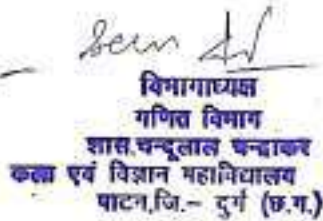 विभागाध्यक्ष
गणित विभाग
शास.चन्दूलाल चन्द्राकर
कला एवं विज्ञान महाविद्यालय
पाटन,जि.– दुर्ग (छ.ग.)